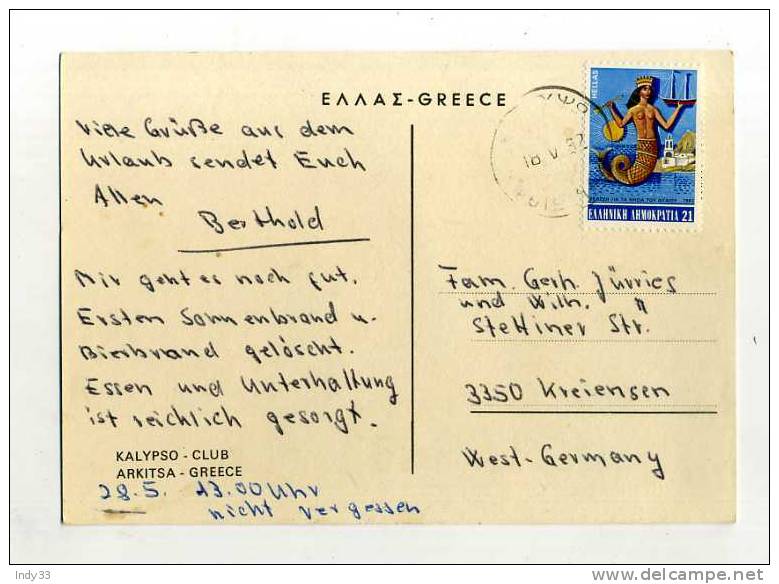 ΕΛΛΑΣ-GREECE
Viele Grüße aus dem
Urlaub sendet Euch
Allen
Berthold
Mir geht es noch gut.
Ersten Sonnenbrand u.
Bierbrand gelöscht.
Essen und Unterhaltung
ist reichlich gesorgt.
KALYPSO - CLUB
ARKITSA - GREECE
28.5. 13.00 Uhr
nicht vergessen
HELLAS
ΕΛΛΗΝΙΚΗ ΔΗΜΟΚΡΑΤΙΑ 21
18 V 82
Fam. Gerh. Jürries
und Wilh. "
Stettiner Str.
3350 Kreiensen
West-Germany
Indy33
delcampe.net